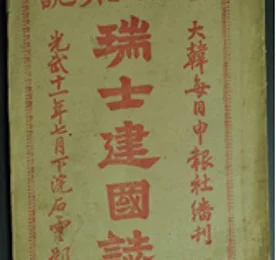 大韓每日申報社繙刊
瑞士建國誌
光武十一年七月下浣石雲